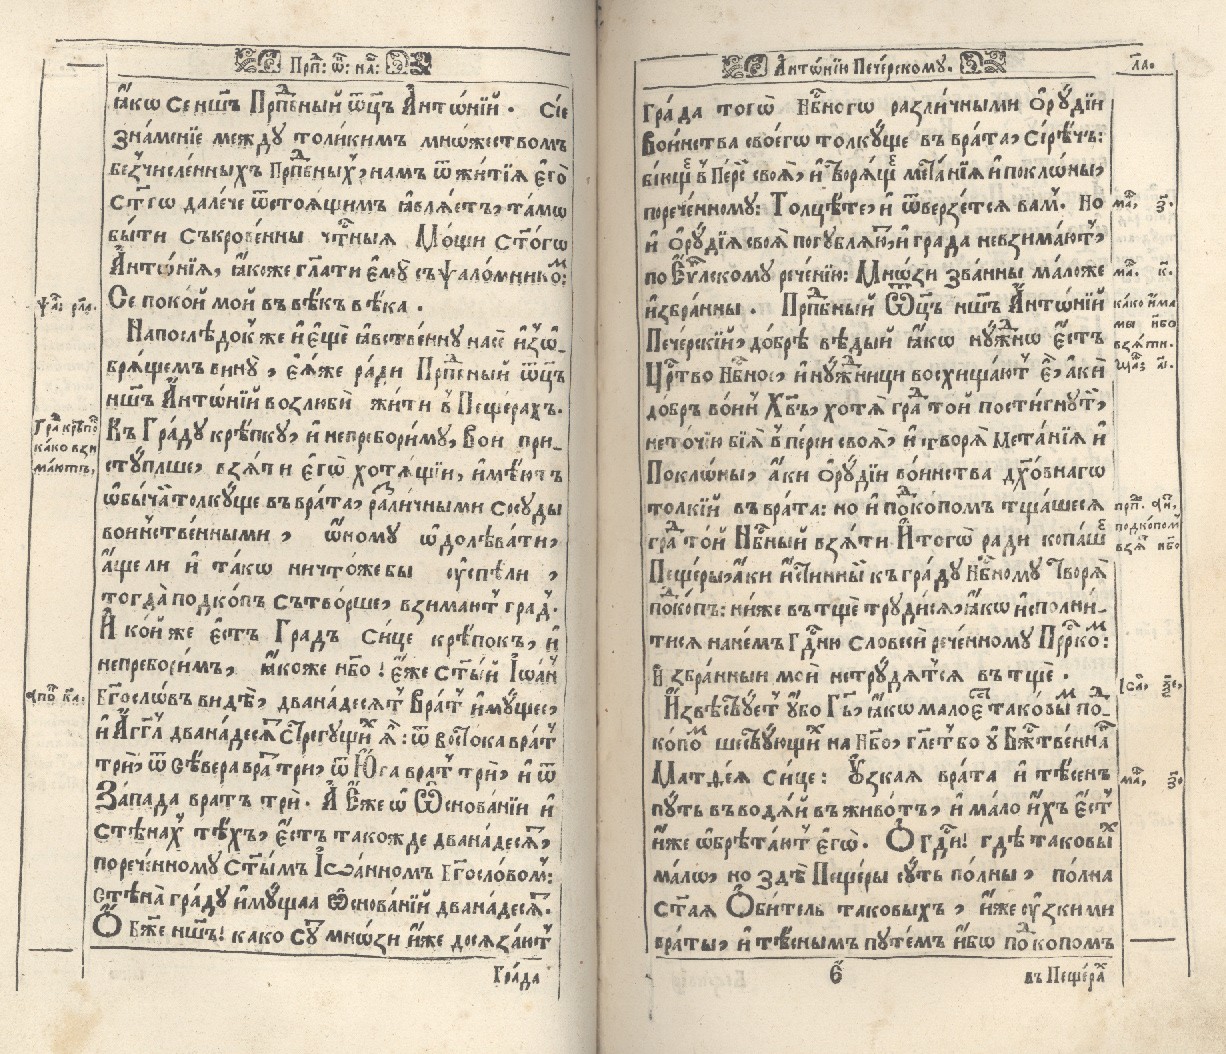 Прпⷣ: ѿ: нш҃:
ꙗ҆́кѡ се нш҃ъ Прпⷣбный ѿц҃ъ А҆нтѡ́нїй. Сїе
зна́менїе между толи́кимъ мнѡ́жествомъ
безчисле́нныхъ Прпⷣбныхъ, намъ ѿ житїѧ є҆гѡ̀
ст҃гѡ дале́че ѿстоѧ́щимъ ꙗ҆влѧ́етъ, та́мѡ
бы́ти съкрове́нны чⷭ҇тныѧ Мо́щи ст҃о́гѡ
А҆нтѡ́нїѧ, ꙗ҆́коже гл҃ати є҆мꙋ̀ съ ѱалѡ́мникоⷨ:
Се поко́й мой въ вѣ́къ вѣ́ка.
ѱаⷧ҇: рл҃а.
Напослѣ́док же и҆ є҆щѐ ꙗ҆́вственнꙋ насѐ и҆зѡ-
брѧ́щемъ винꙋ̀, є҆ѧ́же ра́ди Прпⷣбный ѿц҃ъ
нш҃ъ А҆нтѡ́нїй возлюбѝ жи́ти в̾ Пеще́рахъ.
Къ Гра́дꙋ крѣ́пкꙋ, и҆ непребори́мꙋ, Вои при-
стꙋ́пльше, взѧ́ти є҆гѡ̀ хотѧ́щїи, и҆мѣ́ютъ
ѡ҆бы́чай толкꙋ́ще въ врата̀, разли́чными сосꙋ́ды
вои́нственными, ѡ҆́номꙋ ѡ҆долѣва́ти,
а҆́ще ли и҆ та́кѡ ничто́же бы ᲂу҆спѣ́ли,
тогда̀ подко́пъ сътво́рше, взима́ют̾ град̾.
Граⷣ крѣпоⷦ҇
ка́ко взи
ма́ютъ,
И҆ ко́й же є҆́стъ Градъ си́це крѣ́покъ, и҆
непребори́мъ, ꙗ҆́коже нб҃о! є҆́же ст҃ы́й І҆ѡа́н̾
Бг҃осло́въ ви́дѣ, двана́десѧт̾ Врат̾ и҆мꙋ́щее,
и҆ А҆́гг҃лъ двана́десѧⷮ стрегꙋ́щиⷯ ѧ҆̀: ѿ восто́ка врат̾
трѝ, ѿ сѣ́вера враⷮ три, ѿ Ю҆́га врат̾ трѝ, и҆ ѿ
За́пада вратъ трѝ. А҆ є҆́же ѡ҆ Ѡ҆снова́нїи и҆
стѣна́х̾ тѣ́хъ, є҆́стъ та́кожде двана́десѧⷮ,
порече́нномꙋ ст҃ы́мъ І҆ѡа́нномъ Бг҃осло́вом̾:
стѣна̀ гра́дꙋ и҆мꙋ́щаа Ѡ҆снова́нїй двана́десѧⷮ.
Ѽ Бж҃е нш҃ъ! како сꙋⷮ мнѡ́зи и҆̀же досѧза́ют̾
а҆поⷦ҇ ка҃:
Гра́да
А҆нтѡ́нїи Пече́рскомꙋ.
л҃а.
Гра́да тогѡ̀ нбⷭ҇ногѡ разли́чными Ѻ҆рꙋ́дїи
Во́инства своегѡ̀ толкꙋ́ще въ врата̀, сірѣ́чь:
бїю́щеⷭ в̾ Пе́рсѝ своѧ̀, и҆ творѧ́щⷭе мета́нїѧ и҆ покло́ны,
порече́нномꙋ: Толцѣ́те, и҆ ѿверзе́тсѧ вам̾. Но
и҆ Ѻ҆рꙋ́дїѧ своѧ̀ погꙋблѧ́ют̾, и҆ гра́да невзима́ют̾,
маⷮ, з҃.
по Еѵⷢ҇лскомꙋ рече́нїю: Мнѡ́зи зва́нны ма́ложе
и҆збра́нны. Прпⷣбный Ѿц҃ъ нш҃ъ А҆нтѡ́нїй
маⷮ. к҃.
Пече́рскїй, до́брѣ вѣ́дый ꙗ҆́кѡ нꙋ́жⷣнѡ є҆́стъ
Црⷭ҇тво нбⷭ҇ное, и҆ нꙋ́жⷣници восхища́ют̾ є҆̀, а҆́ки
добръ во́ин̾ Хв҃ъ, хотѧ̀ граⷣ той пости́гнꙋт̾,
не то́чїю бїѧ̀ в̾ пе́рси своѧ̀, и҆ творѧ̀ мета́нїѧ и҆
Покло́ны, а҆́ки Ѻ҆рꙋ́дїи во́инства дх҃о́внагѡ
како и҆́ма
мы нб҃о
взѧ́ти.
толкїй въ врата̀: но и҆ поⷣко́помъ тща́шесѧ
граⷣ то́й нбⷭ҇ный взѧ́ти И҆ тогѡ̀ ради копа́шⷭе
Пеще́ры, а҆́ки и҆́стинный къ гра́дꙋ нбⷭ҇номꙋ творѧ̀
поⷣкопъ: ниже въ тщѐ трꙋди́сѧ, ꙗ҆́кѡ и҆спо́лни-
тисѧ на не́мъ Гдⷭ҇ню словесѝ рече́нномꙋ Прⷪ҇рⷪ҇коⷨ:
И҆збра́нныи моѝ не трꙋдѧ́тсѧ въ тщѐ.
прпⷣ. а҆н,
подко́пом̾
взѧⷮ нб҃о
И҆звѣ́ствꙋет̾ ᲂу҆́бо Гдⷭ҇ь, ꙗ҆́кѡ ма́ло єⷭ҇ такові́ поⷣ-
ко́поⷨ ше́ствꙋющиⷯ на нб҃о, гл҃ет̾ бо ᲂу҆ Бжⷭ҇твеннаⷢ
и҆саⷧ҇, ѯ҃е,
Матѳе́ѧ си́це: Ѹ҆́зкаѧ врата̀ и҆ тѣ́сенъ
пꙋ́ть въводѧ́й въ живо́тъ, и҆ ма́ло и҆́хъ є҆́ст̾
и҆̀же ѡ҆брѣта́ют̾ є҆го̀. Ѽ Гдⷭ҇и! гдѣ̀ таковыⷯ
ма́лѡ, но здѣ̀ Пеще́ры сꙋ́ть по́лны, по́лна
ст҃аѧ Ѻ҆би́тель таковыхъ, и҆̀же ᲂу҆́зкими
враты̀, и҆ тѣ́снымъ пꙋте́мъ и҆́бѡ поⷣкопомъ
маⷮ, з҃.
б҃
въ Пеще́раⷯ